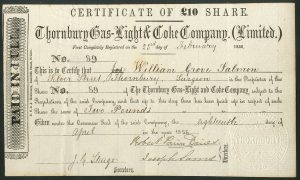 CERTIFICATE OF £10 SHARE.
Thornbury Gas-Light & Coke Company, (Limited.)
First Completely Registered on the 21st day of February 1856.
No. 39
This is to Certify that William Grove Salmon
of Silver Street Thornbury Surgeon is the Proprietor of the
Share No. 39 of The Thornbury Gas-Light and Coke Company, subject to the
Regulations of the said Company, and that up to this day there has been paid up in respect of such
Share the sum of Two Pounds
Given under the Common Seal of the said Company, the eighteenth day of
April in the year 18
Directors
Secretary.
PAID IN FULL